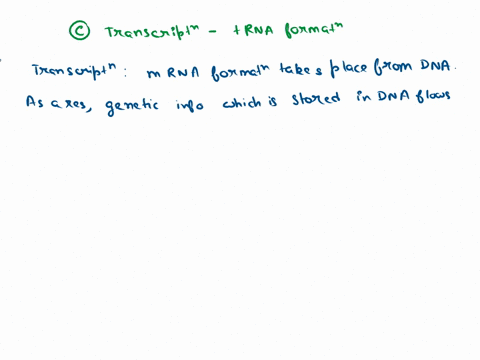 Ⓒ Transcriptⁿ - tRNA formatⁿ
Transcriptⁿ : mRNA formatⁿ takes place from DNA.
As a res, genetic info which is stored in DNA flows